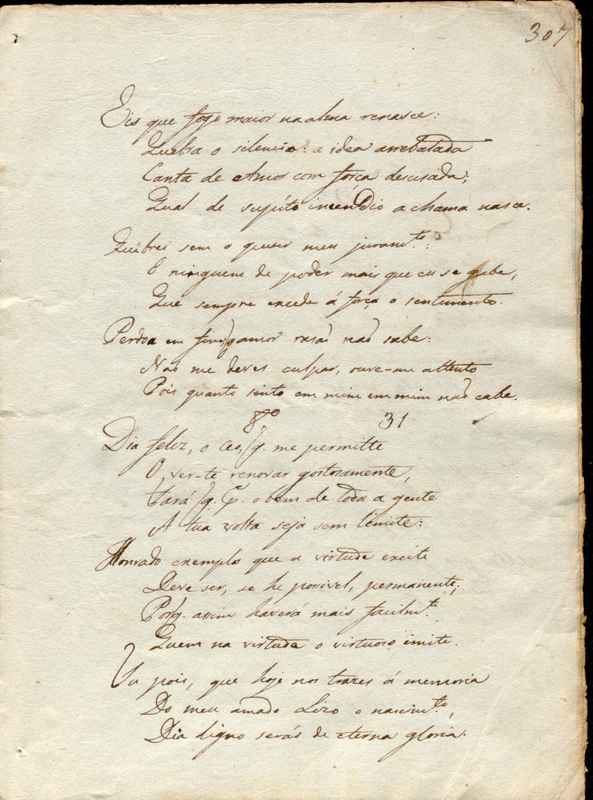 307
Eis que fogo maior na alma renasce:
Quebra o silencio a idea arrebatada
Canta de Amor com força desusada;
Qual de supito incendio a chama nasce.
Quebrei sem o querer meu juram.to:
E ninguem de poder mais que eu se gabe,
Que sempre excede á força o sentimento.
Perdoa em fim, amor rasaõ naõ sabe:
Naõ me deves culpar, ouve-me attento
Pois quanto sinto em mim em mim naõ cabe.
8.º 31
Dia feliz, o Ceo, q. me permitte
O, ver-te renovar gostosamente,
Fará, q. p.a o bem de toda a gente
A tua volta seja sem limite:
Honrado exemplo que a virtude excite
Deve ser, se he posivel, permanente;
Porq. asim haverá mais facilm.te
Quem na virtude o virtuoso imite.
Tu pois, que hoje nos trazes á memoria
Do meu amado Lizo o nascim.to,
Dia digno serás de eterna gloria: